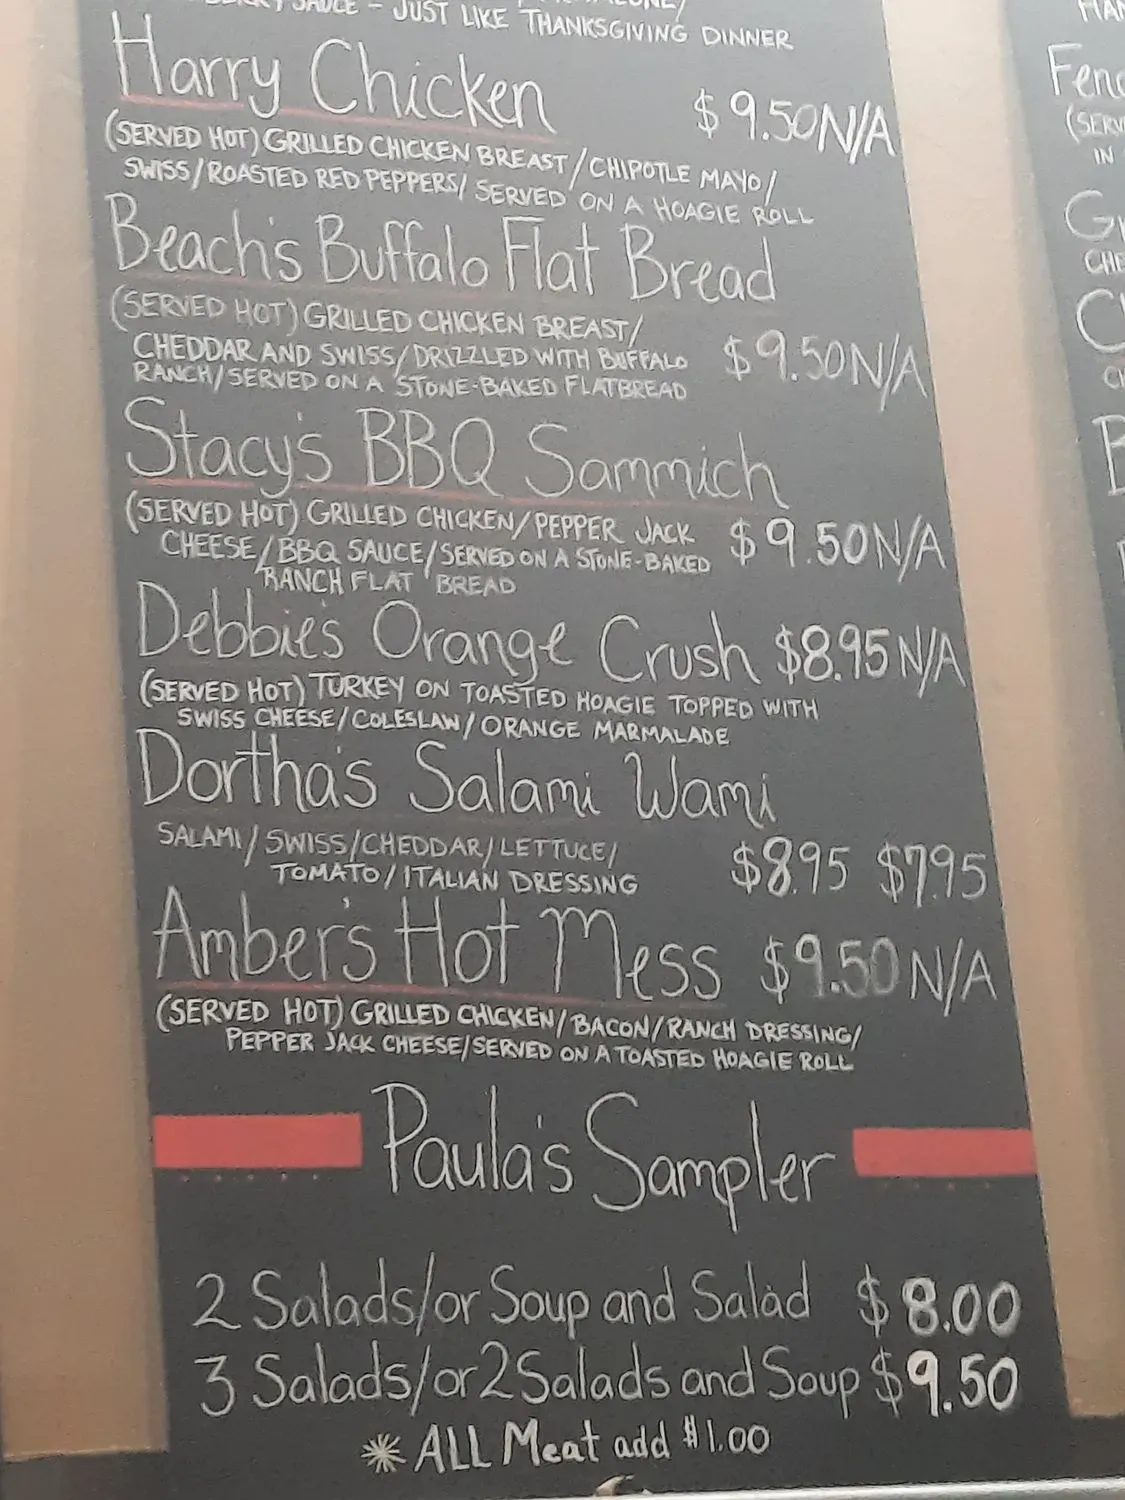 SAUCE - JUST LIKE THANKSGIVING DINNER
Harry Chicken $9.50 N/A
(SERVED HOT) GRILLED CHICKEN BREAST/CHIPOTLE MAYO/
SWISS/ROASTED RED PEPPERS/SERVED ON A HOAGIE ROLL
Beach's Buffalo Flat Bread
(SERVED HOT) GRILLED CHICKEN BREAST/
CHEDDAR AND SWISS/DRIZZLED WITH BUFFALO $9.50 N/A
RANCH/SERVED ON A STONE-BAKED FLATBREAD
Stacy's BBQ Sammich
(SERVED HOT) GRILLED CHICKEN/PEPPER JACK $9.50 N/A
CHEESE/BBQ SAUCE/SERVED ON A STONE-BAKED
RANCH FLAT BREAD
Debbie's Orange Crush $8.95 N/A
(SERVED HOT) TURKEY ON TOASTED HOAGIE TOPPED WITH
SWISS CHEESE/COLESLAW/ORANGE MARMALADE
Dortha's Salami Wami
SALAMI/SWISS/CHEDDAR/LETTUCE/ $8.95 $7.95
TOMATO/ITALIAN DRESSING
Amber's Hot Mess $9.50 N/A
(SERVED HOT) GRILLED CHICKEN/BACON/RANCH DRESSING/
PEPPER JACK CHEESE/SERVED ON A TOASTED HOAGIE ROLL
Paula's Sampler
2 Salads/or Soup and Salad $8.00
3 Salads/or 2 Salads and Soup $9.50
* ALL Meat add $1.00
IN